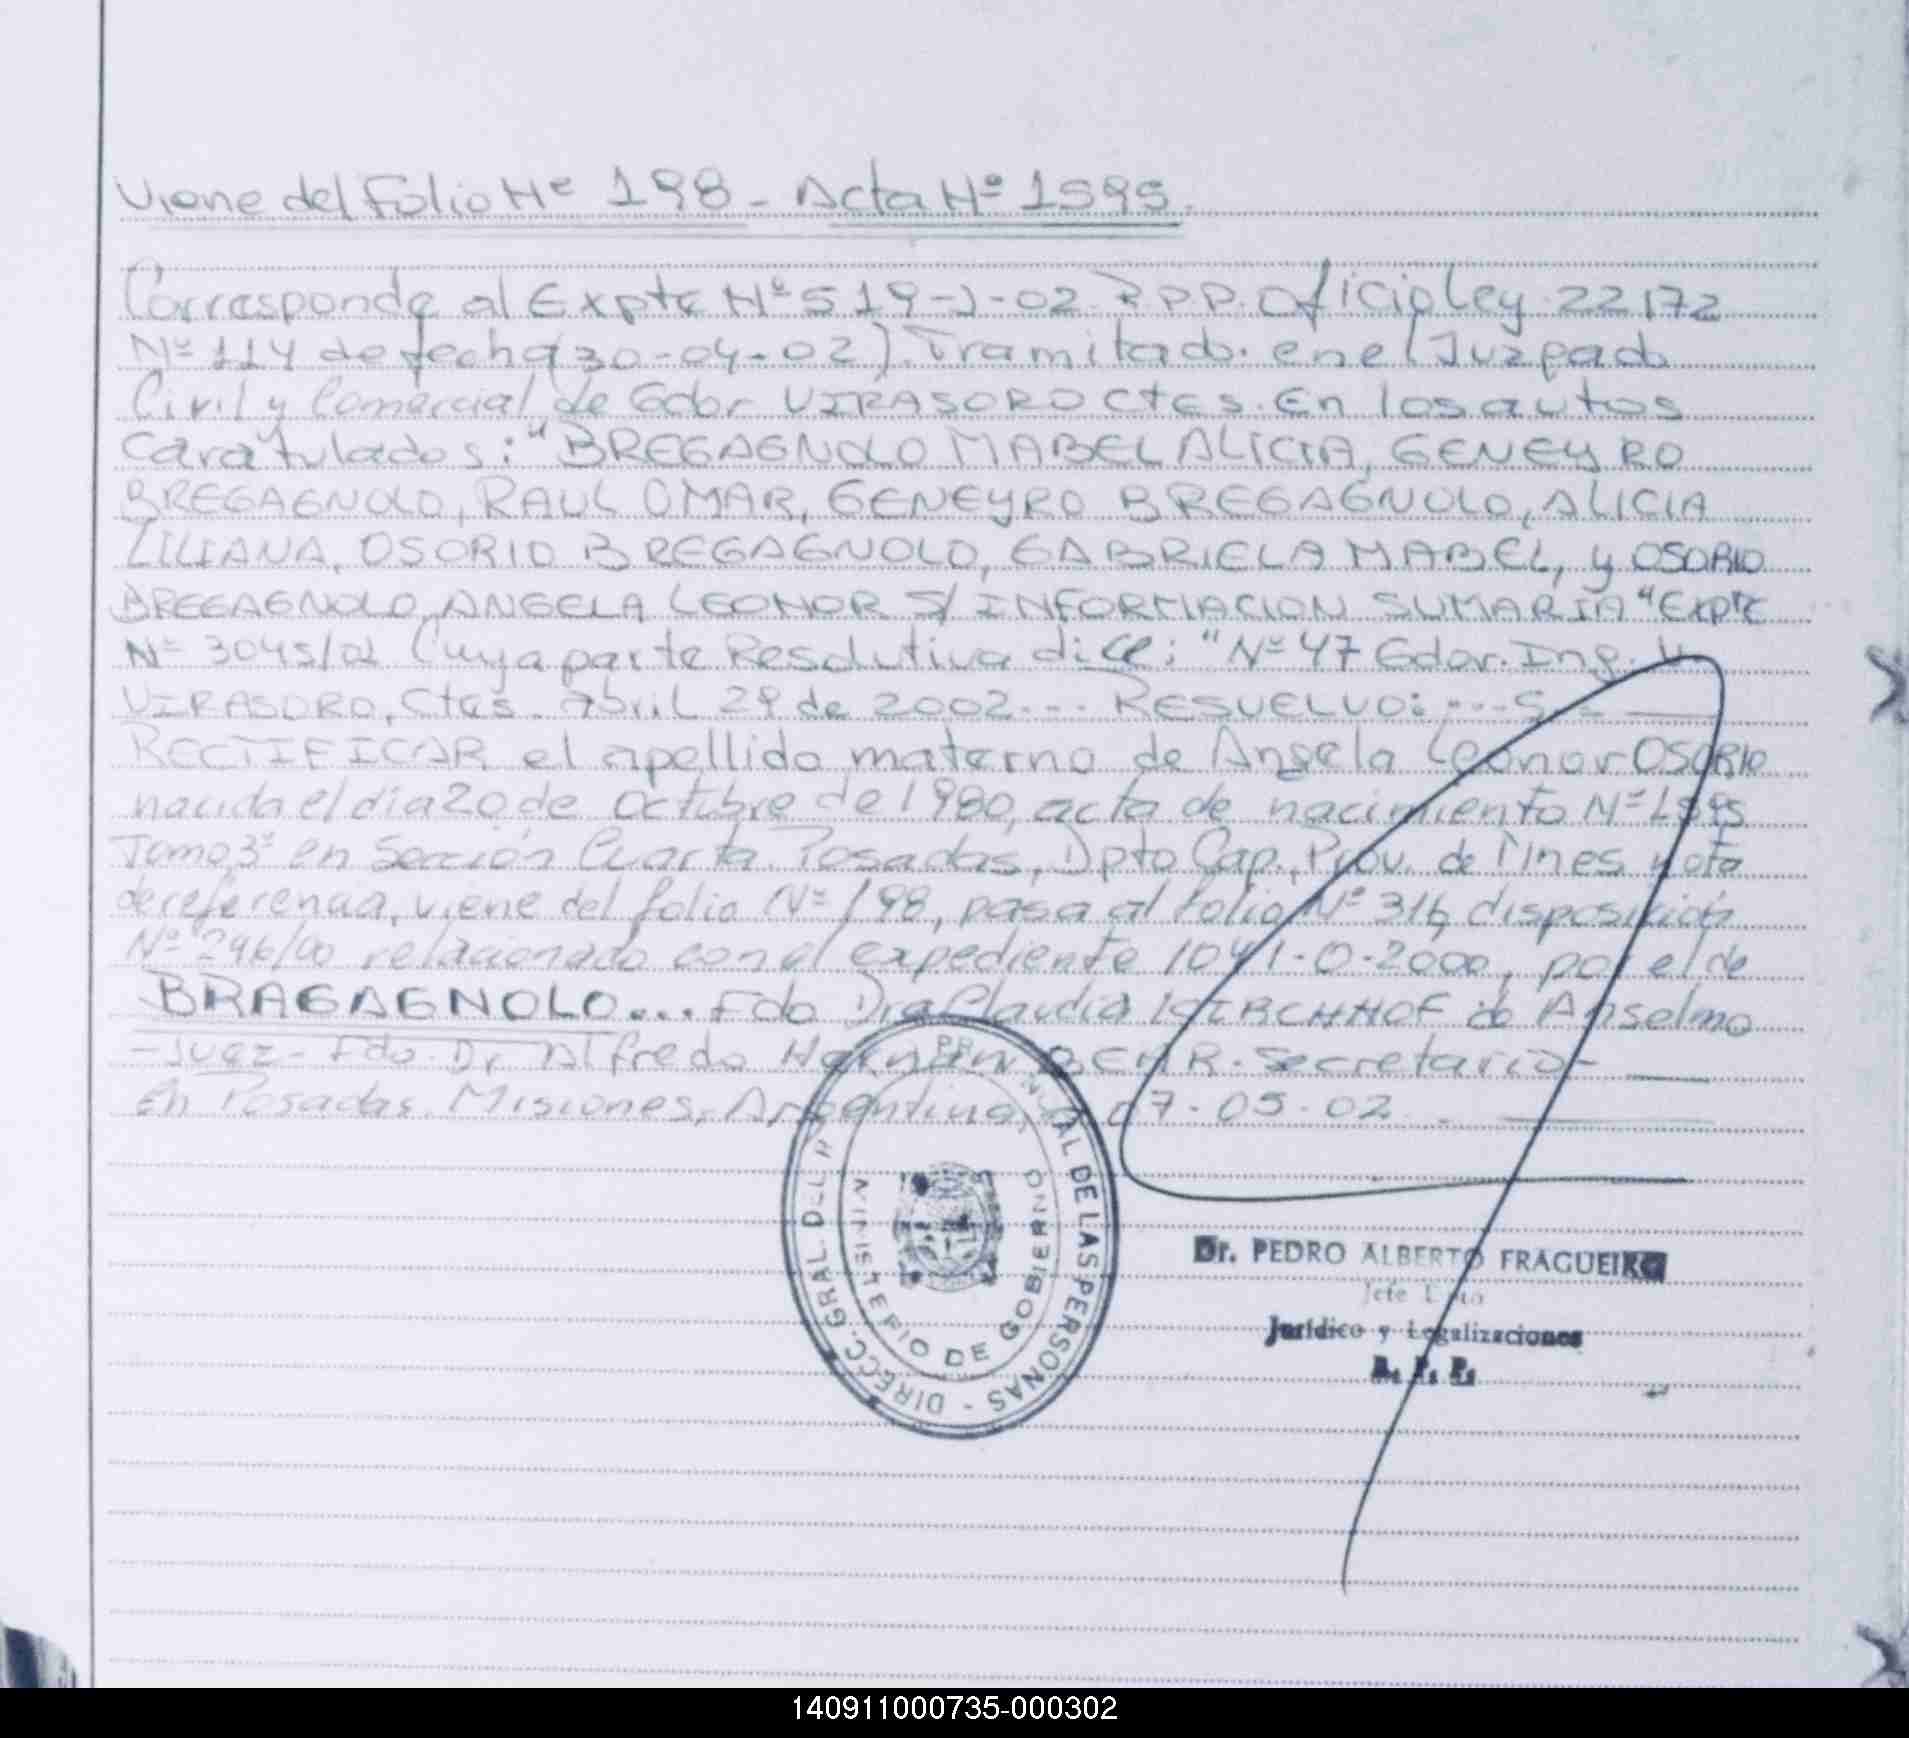 Viene del Folio Nº 198 - Acta Nº 1595.
Corresponde al Expte Nº 519-J-02 R.P.P. Oficio Ley 22172
Nº 114 de fecha (30-04-02). Tramitado en el Juzgado
Civil y Comercial de Gdor VIRASORO Ctes. En los autos
caratulados: "BREGAGNOLO MABEL ALICIA, GENEYRO
BREGAGNOLO, RAUL OMAR, GENEYRO BREGAGNOLO, ALICIA
LILIANA, OSORIO BREGAGNOLO, GABRIELA MABEL, y OSORIO
BREGAGNOLO, ANGELA LEONOR S/ INFORMACION SUMARIA "Expte
Nº 3045/01 Cuya parte Resolutiva dice: "Nº 47 Gdor. Ing.
VIRASORO, Ctes. Abril 29 de 2002... RESUELVO: ...
RECTIFICAR el apellido materno de Angela Leonor OSORIO
nacida el dia 20 de Octubre de 1980, acta de nacimiento Nº 1595
Tomo 3º en Sección Cuarta Posadas, Dpto Cap., Prov. de Mnes nota
de referencia, viene del folio Nº 198, pasa al folio Nº 316 disposición
Nº 246/00 relacionado con el expediente 1041-O-2000, por el de
BRAGAGNOLO... Fdo Dra Claudia KIRCHHOF de Anselmo
- Juez - Fdo. Dr Alfredo Hernan BEHR - Secretario -
En Posadas Misiones, Argentina, a 07-05-02.
DIRECC. GRAL. DEL PROVINCIAL DE LAS PERSONAS -
MINISTERIO DE GOBIERNO
Dr. PEDRO ALBERTO FRAGUEIRO
Jefe Dpto
Jurídico y Legalizaciones
R. P. P.
140911000735-000302